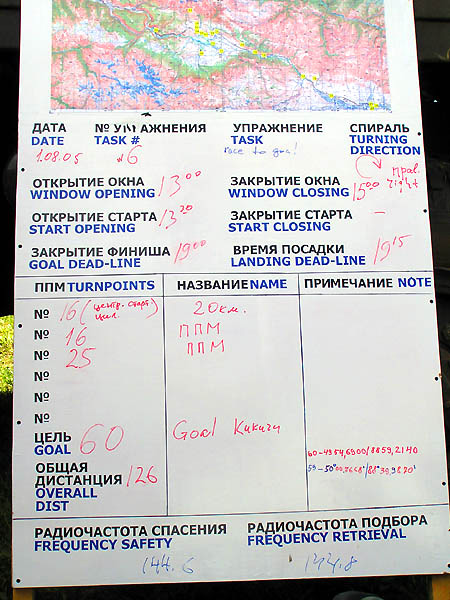 ДАТА № УПРАЖНЕНИЯ УПРАЖНЕНИЕ СПИРАЛЬ
DATE TASK # TASK TURNING DIRECTION
1.08.05 6 race to goal прав. right
ОТКРЫТИЕ ОКНА 13 00 ЗАКРЫТИЕ ОКНА 15 00
WINDOW OPENING WINDOW CLOSING
ОТКРЫТИЕ СТАРТА 13 20 ЗАКРЫТИЕ СТАРТА –
START OPENING START CLOSING
ЗАКРЫТИЕ ФИНИША 19 00 ВРЕМЯ ПОСАДКИ 19 15
GOAL DEAD-LINE LANDING DEAD-LINE
ППМ TURNPOINTS НАЗВАНИЕ NAME ПРИМЕЧАНИЕ NOTE
№ 16 (центр. старт. цил. 20 км.
№ 16 ППМ
№ 25 ППМ
№
№
№
ЦЕЛЬ 60 Goal
GOAL
ОБЩАЯ
ДИСТАНЦИЯ 126
OVERALL
DIST
РАДИОЧАСТОТА СПАСЕНИЯ РАДИОЧАСТОТА ПОДБОРА
FREQUENCY SAFETY FREQUENCY RETRIEVAL
144.6 144.8